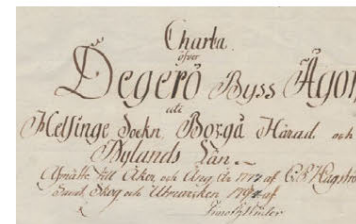 Charta
öfver
Degerö Byss Ägor
uti
Helsinge Sockn Borgå Härad och
Nylands Län
Afmätte till Åker och Äng åo 1777 af C. P. Hagström
Skog och Utmarken af